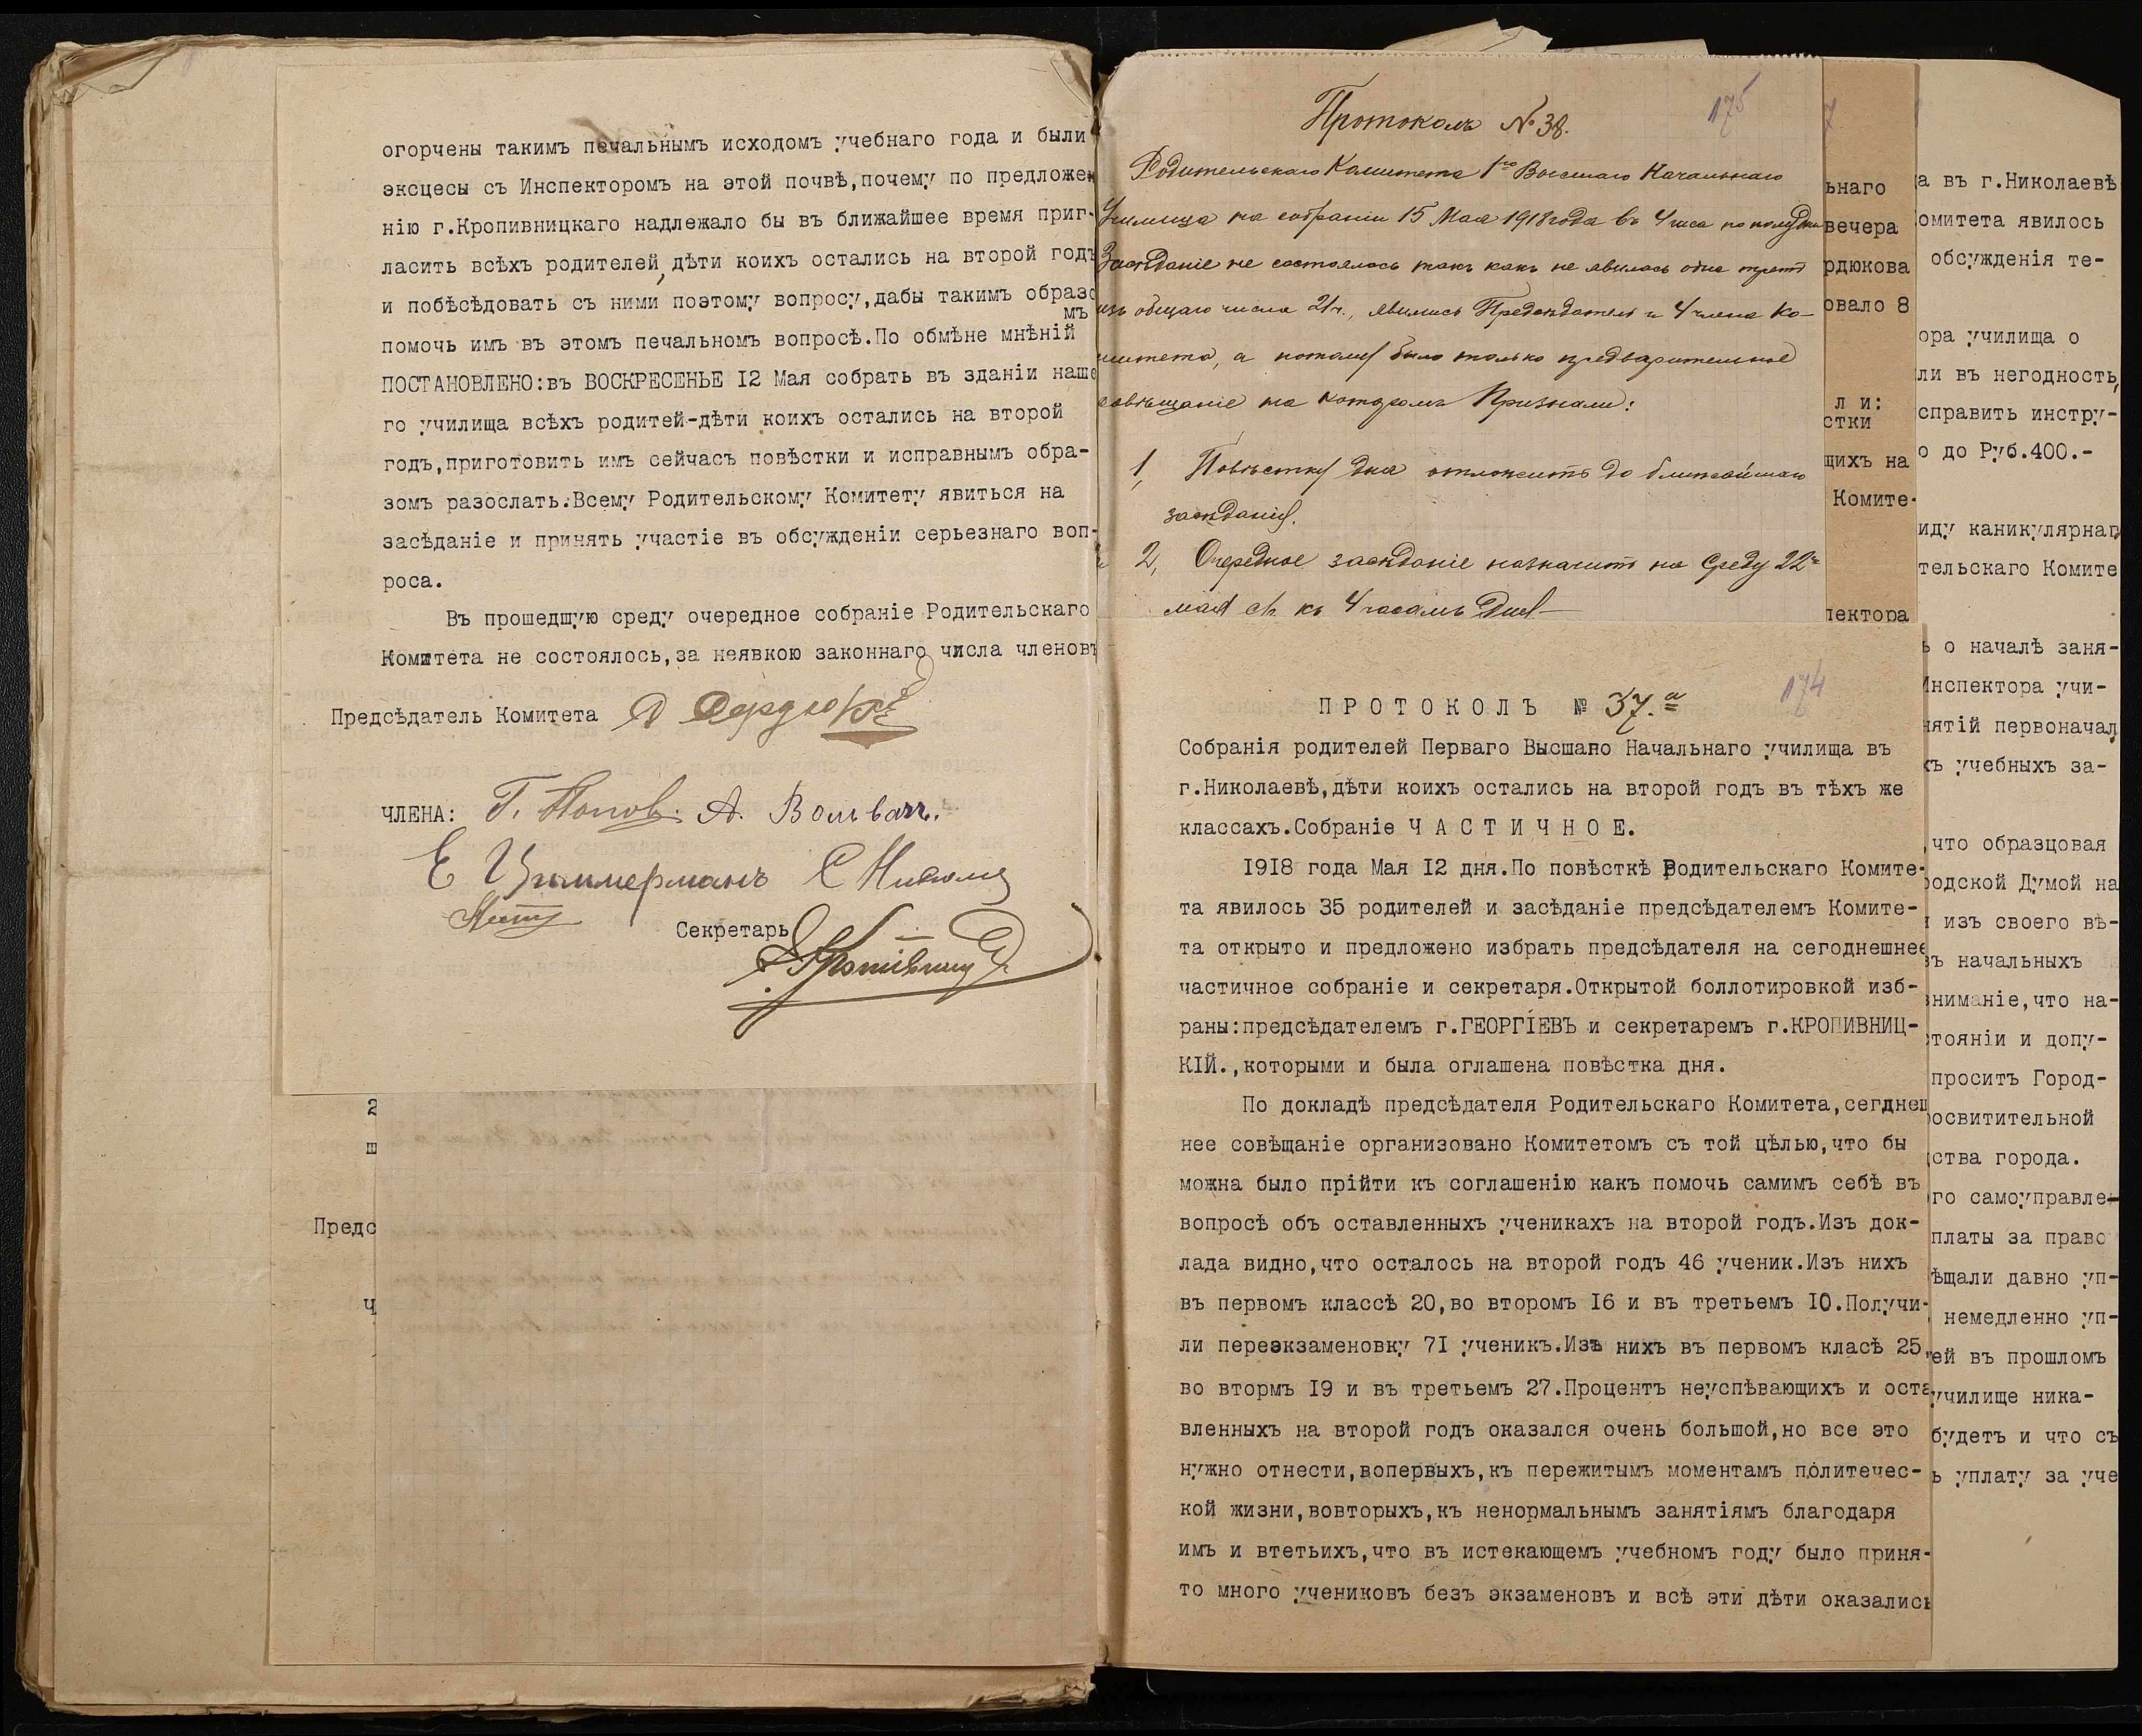 огорчены такимъ печальнымъ исходомъ учебнаго года и были
эксцесы съ Инспекторомъ на этой почвѣ,почему по предложен
нію г.Кропивницкаго надлежало бы въ ближайшее время приг-
ласить всѣхъ родителей,дѣти коихъ остались на второй годъ
и побѣсѣдовать съ ними поэтому вопросу,дабы такимъ образо
мъ
помочь имъ въ этомъ печальномъ вопросѣ.По обмѣне мнѣній
ПОСТАНОВЛЕНО:въ ВОСКРЕСЕНЬЕ I2 Мая собрать въ зданіи наше
го училища всѣхъ родитей-дѣти коихъ остались на второй
годъ,приготовить имъ сейчасъ повѣстки и исправнымъ обра-
зомъ разослать.Всему Родительскому Комитету явиться на
засѣданіе и принять участіе въ обсужденіи серьезнаго воп-
роса.
Въ прошедшую среду очередное собраніе Родительскаго
Комитета не состоялось,за неявкою законнаго числа членовъ
Предсѣдатель Комитета
ЧЛЕНА: Г. Попов. А. Вольвач.
Е Циммерманъ
Секретарь
2
ш
Предс
Ч
Протоколъ №38.
175
Родительскаго Комитета 1го Высшаго Начальнаго
Училища на собраніи 15 Мая 1918 года въ 4 часа по полудни
Засѣданіе не состоялось такъ какъ не явилось одна треть
изъ общаго числа 21 ч., явились Предсѣдатель и 4 члена Ко-
митета, а потому было только предварительное
совѣщаніе на которомъ Признали:
1, Повѣстку дня отложить до ближайшаго
засѣданія.
2, Очередное засѣданіе назначить на Среду 22го
мая с/г. къ 4 часамъ Дня
174
ПРОТОКОЛЪ № 37.а
Собранія родителей Перваго Высшаго Начальнаго училища въ
г.Николаевѣ,дѣти коихъ остались на второй годъ въ тѣхъ же
классахъ.Собраніе Ч А С Т И Ч Н О Е.
I9I8 года Мая I2 дня.По повѣсткѣ Родительскаго Комите-
та явилось 35 родителей и засѣданіе предсѣдателемъ Комите-
та открыто и предложено избрать предсѣдателя на сегоднешнее
частичное собраніе и секретаря.Открытой боллотировкой изб-
раны:предсѣдателемъ г.ГЕОРГІЕВЪ и секретаремъ г.КРОПИВНИЦ-
КІЙ.,которыми и была оглашена повѣстка дня.
По докладѣ предсѣдателя Родительскаго Комитета,сегднеш
нее совѣщаніе организовано Комитетомъ съ той цѣлью,что бы
можна было прійти къ соглашенію какъ помочь самимъ себѣ въ
вопросѣ объ оставленныхъ ученикахъ на второй годъ.Изъ док-
лада видно,что осталось на второй годъ 46 ученик.Изъ нихъ
въ первомъ классѣ 20,во второмъ I6 и въ третьемъ I0.Получи-
ли переэкзаменовку 7I ученикъ.Изъ нихъ въ первомъ класѣ 25,
во втормъ I9 и въ третьемъ 27.Процентъ неуспѣвающихъ и оста
вленныхъ на второй годъ оказался очень большой,но все это
нужно отнести,вопервыхъ,къ пережитымъ моментамъ политечес-
кой жизни,вовторыхъ,къ ненормальнымъ занятіямъ благодаря
имъ и втетьихъ,что въ истекающемъ учебномъ году было приня-
то много учениковъ безъ экзаменовъ и всѣ эти дѣти оказались
7
ьнаго
вечера
рдюкова
овало 8
л и:
стки
щихъ на
Комите-
пектора
а въ г.Николаевѣ
омитета явилось
обсужденія те-
ора училища о
ли въ негодность,
справить инстру-
о до Руб.400.-
иду каникулярнаг
тельскаго Комите
ь о началѣ заня-
Инспектора учи-
нятій первоначал
хъ учебныхъ за-
,что образцовая
родской Думой на
изъ своего вѣ-
въ начальныхъ
ниманіе,что на-
стояніи и допу-
проситъ Город-
росвитительной
ства города.
го самоуправле-
платы за право
ѣщали давно уп-
немедленно уп-
ей въ прошломъ
училище ника-
будетъ и что съ
ь уплату за уче